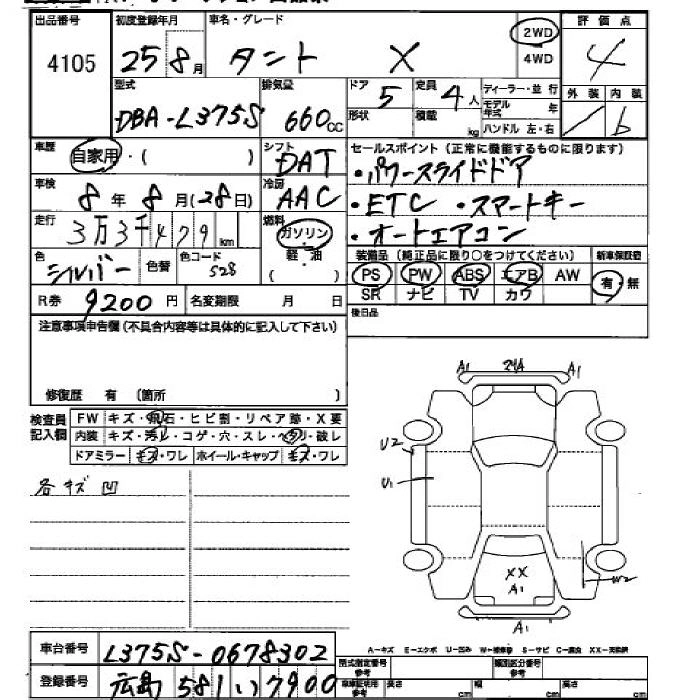 出品番号 初度登録年月 車名・グレード 2WD 評価点
4105 25 8月 タント X 4WD 4
型式 排気量 ドア 5 定員 4人 ディーラー・並行 外装 内装
DBA-L375S 660cc 形状 積載 kg モデル年式 年 b
ハンドル 左・右
車歴 自家用・( ) シフト DAT セールスポイント(正常に機能するものに限ります)
・パワースライドドア
車検 8年 8月(28日) 冷房 AAC ・ETC ・スマートキー
走行 3万3千479km 燃料 ガソリン・ ・オートエアコン
色 シルバー 色替 色コード S28 軽・油 ( ) 装備品(純正品に限り○をつけてください) 新車保証書
PS PW ABS エアB AW 有・無
R券 9200円 名変期限 月 日 SR ナビ TV カワ
注意事項申告欄(不具合内容等は具体的に記入して下さい) 後日品
修復歴 有 (箇所 )
検査員 FW キズ・飛石・ヒビ割・リペア跡・X要
記入欄 内装 キズ・汚レ・コゲ・穴・スレ・ヘタリ・破レ
ドアミラー キズ・ワレ ホイール・キャップ キズ・ワレ
各キズ凹
A1 A1
U2
U1
XX
A1 W2
A1
A-キズ E-エクボ U-凹み W-補修跡 S-サビ C-腐食 XX-交換済
車台番号 L375S-0678302 型式指定番号 参考 類別区分番号 参考
登録番号 広島 581 い 7900 車車証明用 参考 長さ cm 幅 cm 高さ cm